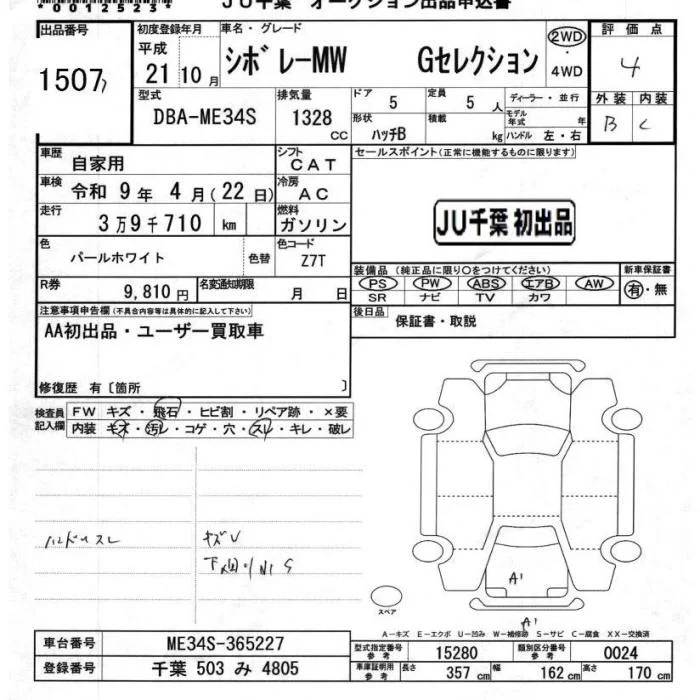 *0012523*
JU千葉 オークション出品申込書
出品番号 初度登録年月 車名・グレード 2WD・4WD 評価点
1507 平成 21年 10月 シボレーMW Gセレクション 4
型式 排気量 ドア 5 定員 5人 ディーラー・並行 外装 内装
DBA-ME34S 1328cc 形状 ハッチB 積載 kg モデル年式 年 B C
ハンドル 左・右
車歴 自家用 シフト CAT セールスポイント(正常に機能するものに限ります)
車検 令和 9年 4月(22日) 冷房 AC
走行 3万9千710 km 燃料 ガソリン JU千葉 初出品
色 パールホワイト 色替 色コード Z7T
装備品(純正品に限り○をつけてください) 新車保証書
R券 9,810円 名変通知期限 月 日 PS PW ABS エアB AW 有・無
SR ナビ TV カワ
注意事項申告欄(不具合内容等は具体的に記入して下さい) 後日品 保証書・取説
AA初出品・ユーザー買取車
修復歴 有〔箇所 〕
検査員記入欄 FW キズ・飛石・ヒビ割・リペア跡・×要
内装 キズ・汚レ・コゲ・穴・スレ・キレ・破レ
ハンドルスレ キズV
S
A'
スペア A'
A-キズ E-エクボ U-凹み W-補修跡 S-サビ C-腐食 XX-交換済
車台番号 ME34S-365227 型式指定番号 参考 15280 類別区分番号 参考 0024
登録番号 千葉 503 み 4805 車庫証明用 参考 長さ 357cm 幅 162cm 高さ 170cm